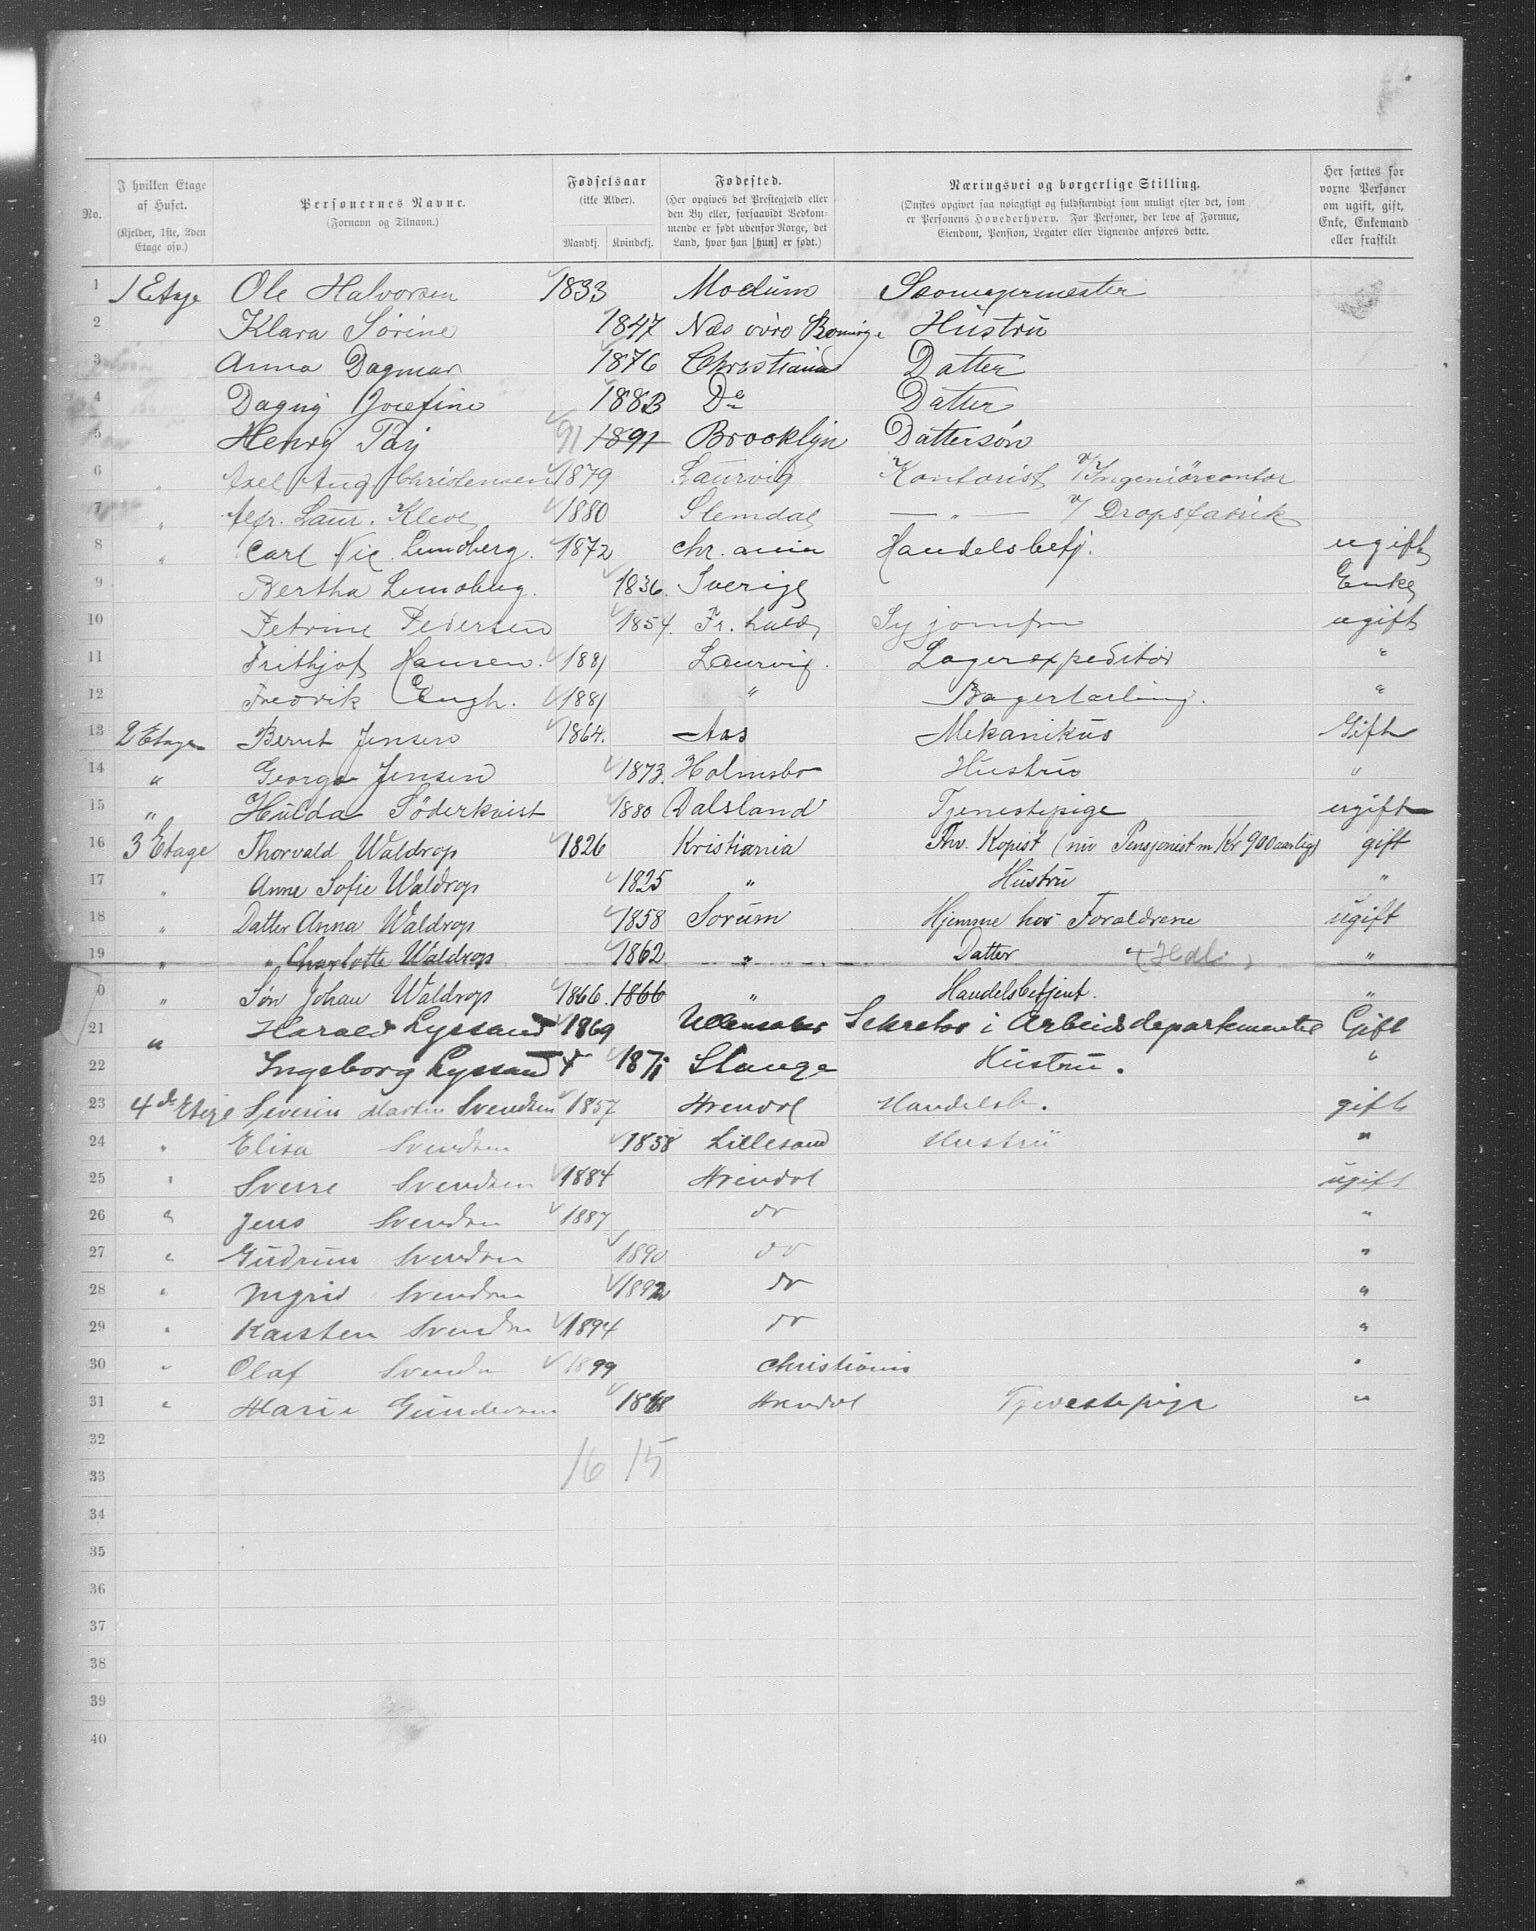 No. | I hvilken Etage af Huset. (Kjelder, 1ste, 2den Etage osv.) | Personernes Navne. (Fornavn og Tilnavn.) | Fødselsaar (ikke Alder). Mandkj. Kvindekj. | Fødested. (Her opgives det Prestegjæld eller den By eller, forsaavidt Vedkommende er født udenfor Norge, det Land, hvor han [hun] er født.) | Næringsvei og borgerlige Stilling. (Ønskes opgivet saa nøiagtigt og fuldstændigt som muligt efter det, som er Personens Hovederhverv. For Personer, der leve af Formue, Eiendom, Pension, Legater eller Lignende anføres dette.) | Her sættes for voxne Personer om ugift, gift, Enke, Enkemand eller fraskilt.
1 1 Etage Ole Halvorsen 1833 Modum Skomagermester
2 Klara Sørine 1847 Næs øvre Romrige Hustru
3 Anna Dagmar 1876 Christiania Datter
4 Dagny Josefine 1883 Do Datter
5 Henry Paj 91 1891 Brooklyn Dattersøn
6 " Axel Aug Christensen 1879 Laurvig Kontorist v/ Ingeniørcontor
7 " Alfr. Laur. Kleve 1880 Slemdal — " — v/ Dropsfabrik
8 " Carl Nic. Lundberg. 1872 Chr. ania Handelsbetj. ugift
9 Bertha Lundberg. 1836. Sverige Enke
10 Petrine Pedersen 1854. Fr. hald Syjomfru ugift
11 Frithjof Hansen. 1881 Laurvig. Lagerexpeditør "
12 Fredrik Engh. 1881 " Bagerlærling. "
13 2 Etage Bernt Jensen 1864. Aas Mekanikus Gift
14 " Georga Jensen 1873. Holmsbo Hustru "
15 " Hulda Söderkvist 1880 Dalsland Tjenestepige ugift
16 3 Etage Thorvald Waldrop 1826 Kristiania Fhv. Kopist (nu Pensjonist m/ Kr 900 aarlig) gift
17 " Anne Sofie Waldrop 1825 " Hustru "
18 " Datter Anna Waldrop 1858 Sørum Hjemme hos Forældrene ugift
19 " " Charlotte Waldrop 1862 " Datter " (Hdl.) "
20 " Søn Johan Waldrop 1866. 1866 " Handelsbetjent. "
21 " Harald Lyssand 1869 Ullensaker Sekretær i Arbeidsdepartementet Gift
22 Ingeborg Lyssand 1871 Stange Hustru. "
23 4de Etage Severin Martin Svendsen 1857 Arendal Handelsb. gift
24 " Elisa Svendsen 1858 Lillesand Hustru "
25 " Sverre Svendsen 1884 Arendal ugift
26 " Jens Svendsen 1887 do "
27 " Gudrun Svendsen 1890 do "
28 " Ingrid Svendsen 1892 do "
29 " Karsten Svendsen 1894 do "
30 " Olaf Svendsen 1899 Christiania "
31 " Marie Gundersen Arendal Tjenestepige "
32
33 16 15
34
35
36
37
38
39
40